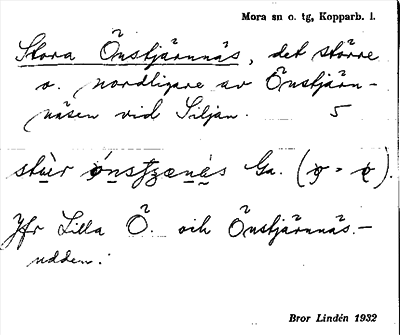 Mora sn o. tg, Kopparb. l.
Stora Önstjärnnäs, det större
o. nordligare av Önstjärn-
näsen vid Siljan. 5
Ga.
Jfr Lilla Ö. och Önstjärnnäs-
udden.
Bror Lindén 1932